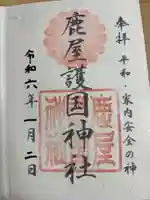 奉拝 平和・家内安全の神
鹿屋護国神社
令和六年一月二日